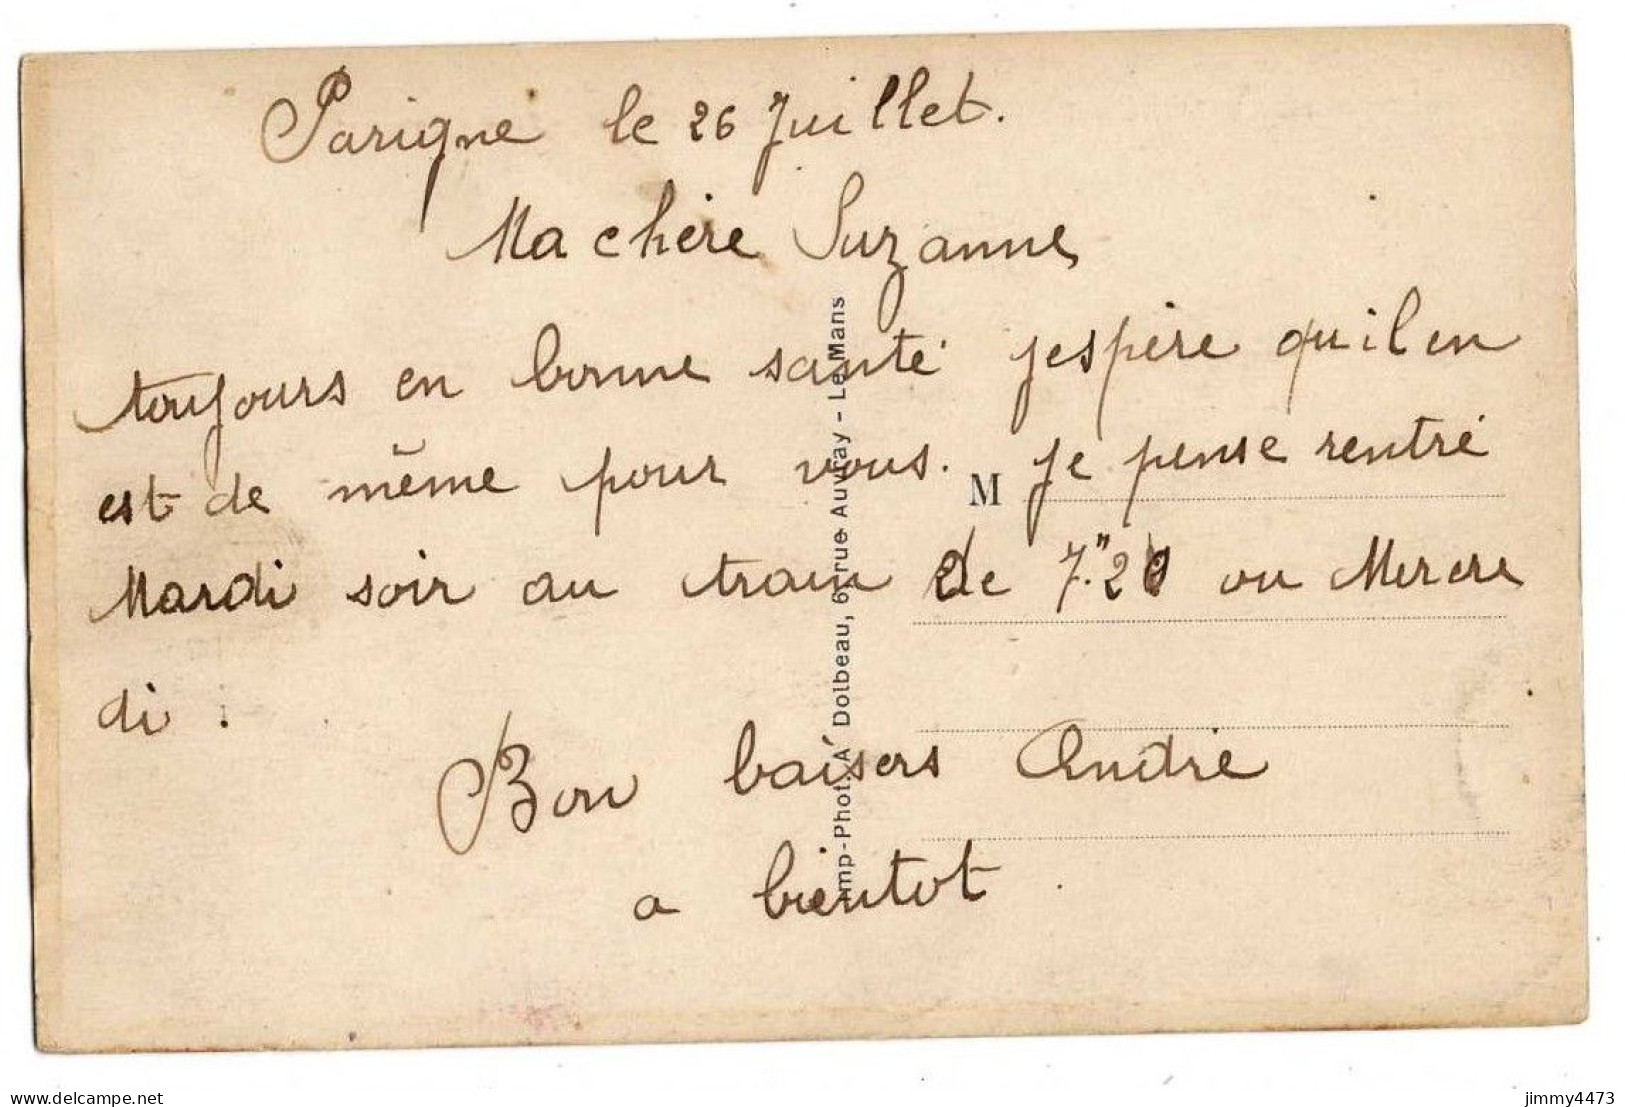 Parigne le 26 Juillet.
Ma chère Suzanne
toujours en bonne santé jespère quil en
est de même pour vous. je pense rentré
M
Mardi soir au train de 7."20 ou Mercre
di .
Bon baisers André
a bientot .
Imp-Phot. A Dolbeau, 6 rue Auvray - Le Mans
delcampe.net
jimmy4473